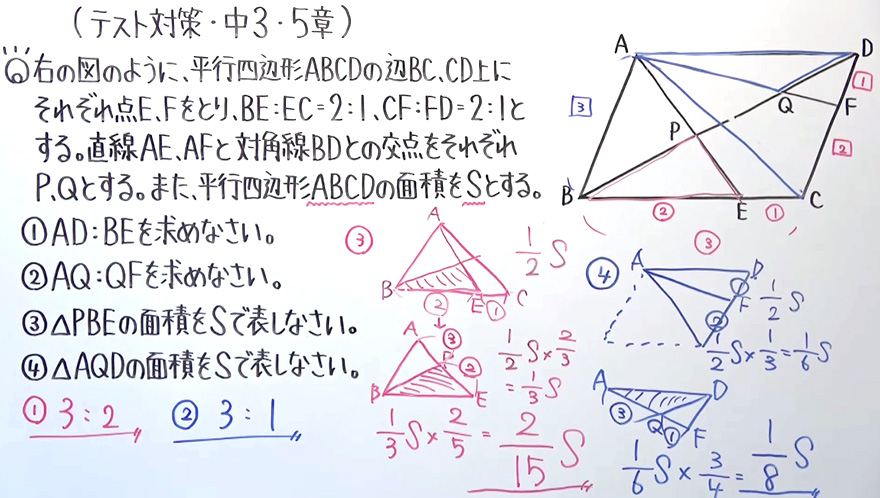 (テスト対策・中3・5章)
Q右の図のように、平行四辺形ABCDの辺BC、CD上に
それぞれ点E、Fをとり、BE:EC=2:1、CF:FD=2:1と
する。直線AE、AFと対角線BDとの交点をそれぞれ
P、Qとする。また、平行四辺形ABCDの面積をSとする。
①AD:BEを求めなさい。
②AQ:QFを求めなさい。
③△PBEの面積をSで表しなさい。
④△AQDの面積をSで表しなさい。
① 3:2
② 3:1
A
D
3
1
Q
F
P
2
B
②
E
①
C
③
③
A
1/2 S
B
E
C
②
①
A
③
P
②
B
E
1/2 S×2/3
=1/3 S
1/3 S×2/5=2/15 S
④
A
D
①
F
②
1/2 S
1/2 S×1/3=1/6 S
A
D
③
Q
①
F
1/6 S×3/4=1/8 S